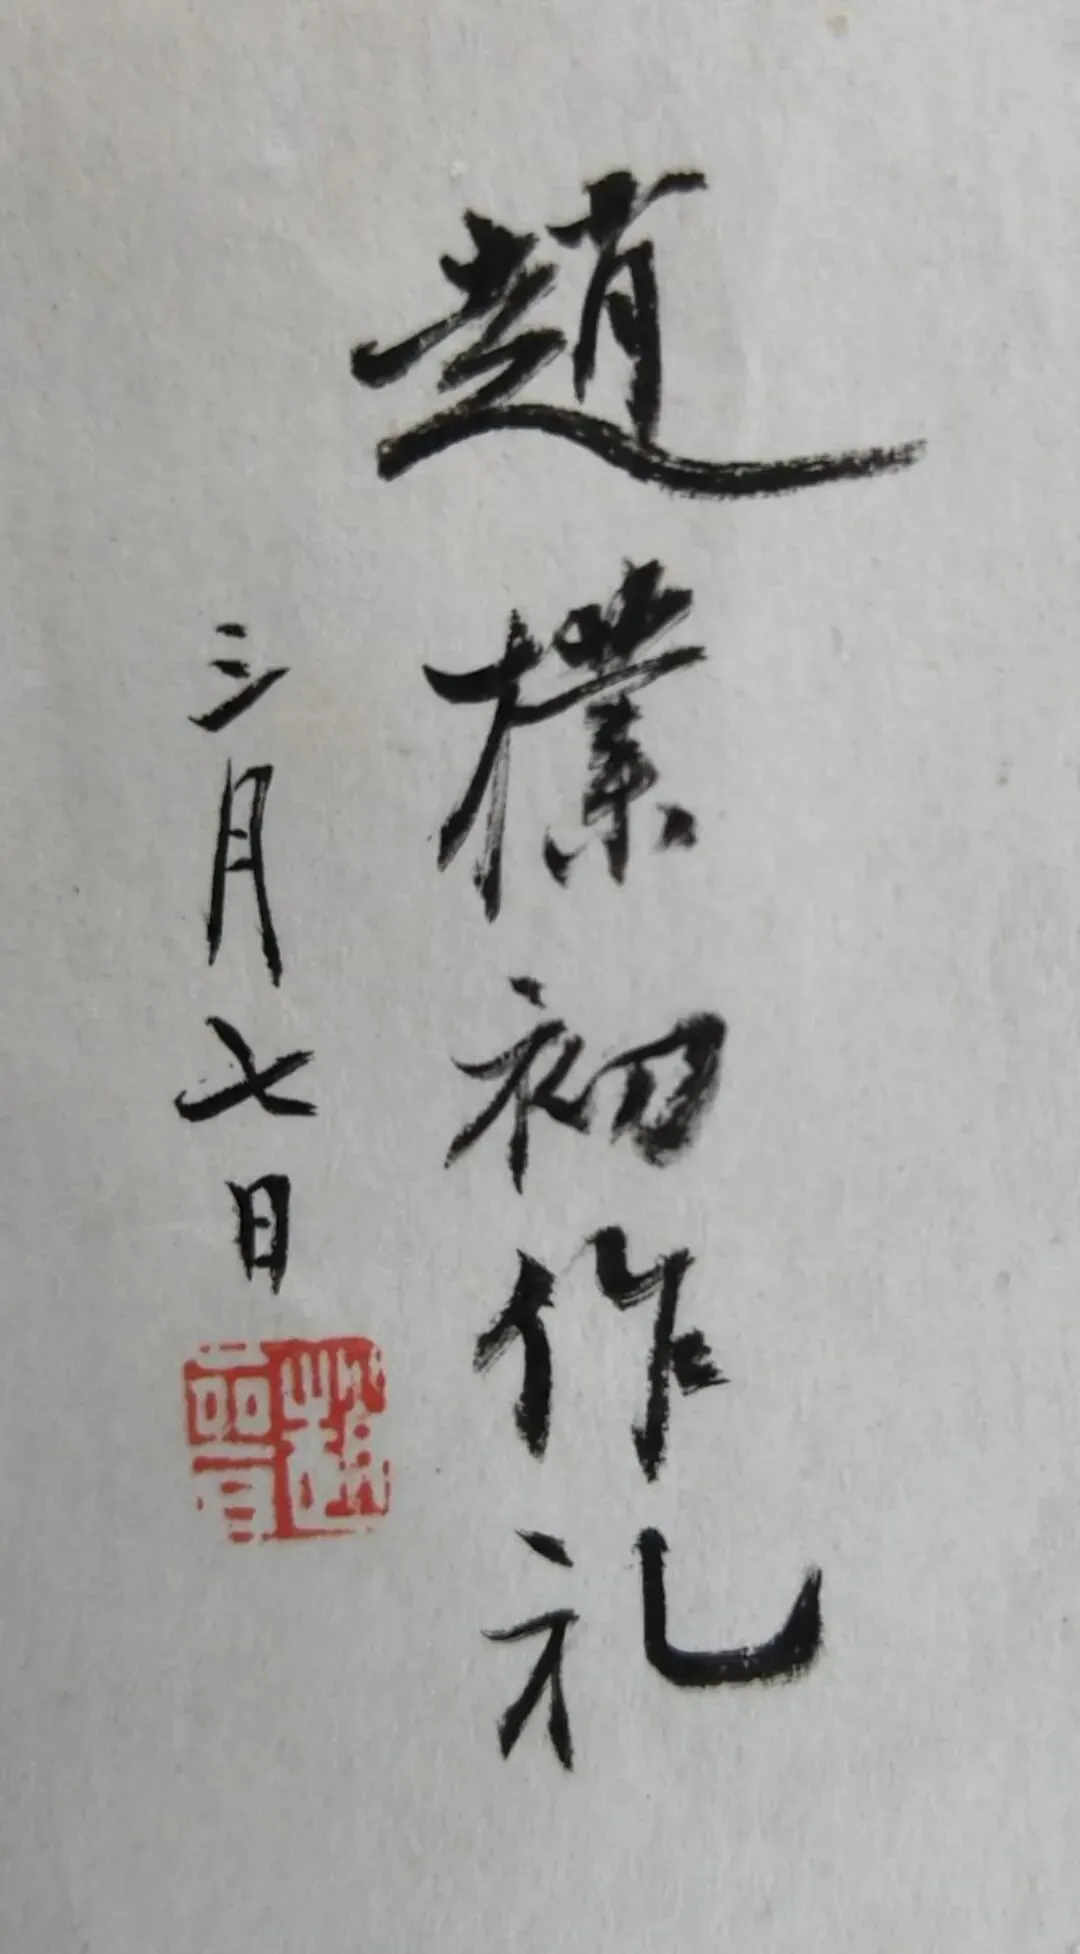 趙樸初作礼
三月七日